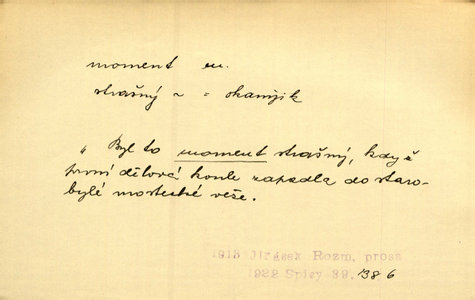 moment m.
strašný ~ = okamžik
„ Byl to moment strašný, když
první dělová koule zapadla do staro-
bylé mostecké věže.
1913 Jirásek Rozm. prosa
1922 Spisy 39. 386